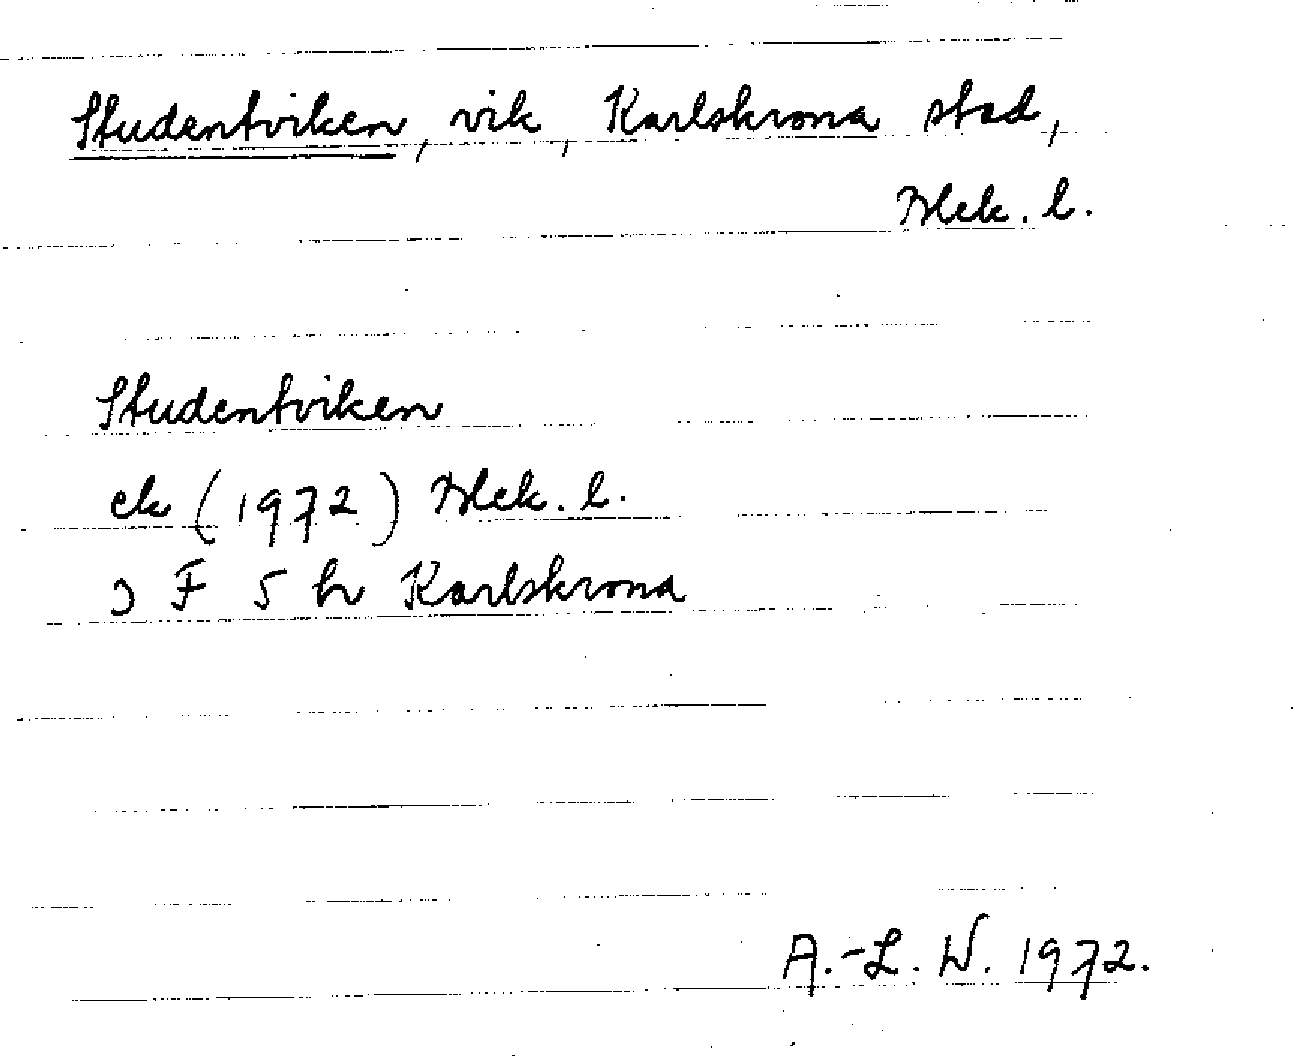 Studentviken, vik, Karlskrona stad,
Blek. l.
Studentviken
ek (1972) Blek. l.
3 F 5 h Karlskrona
A.-L. W. 1972.